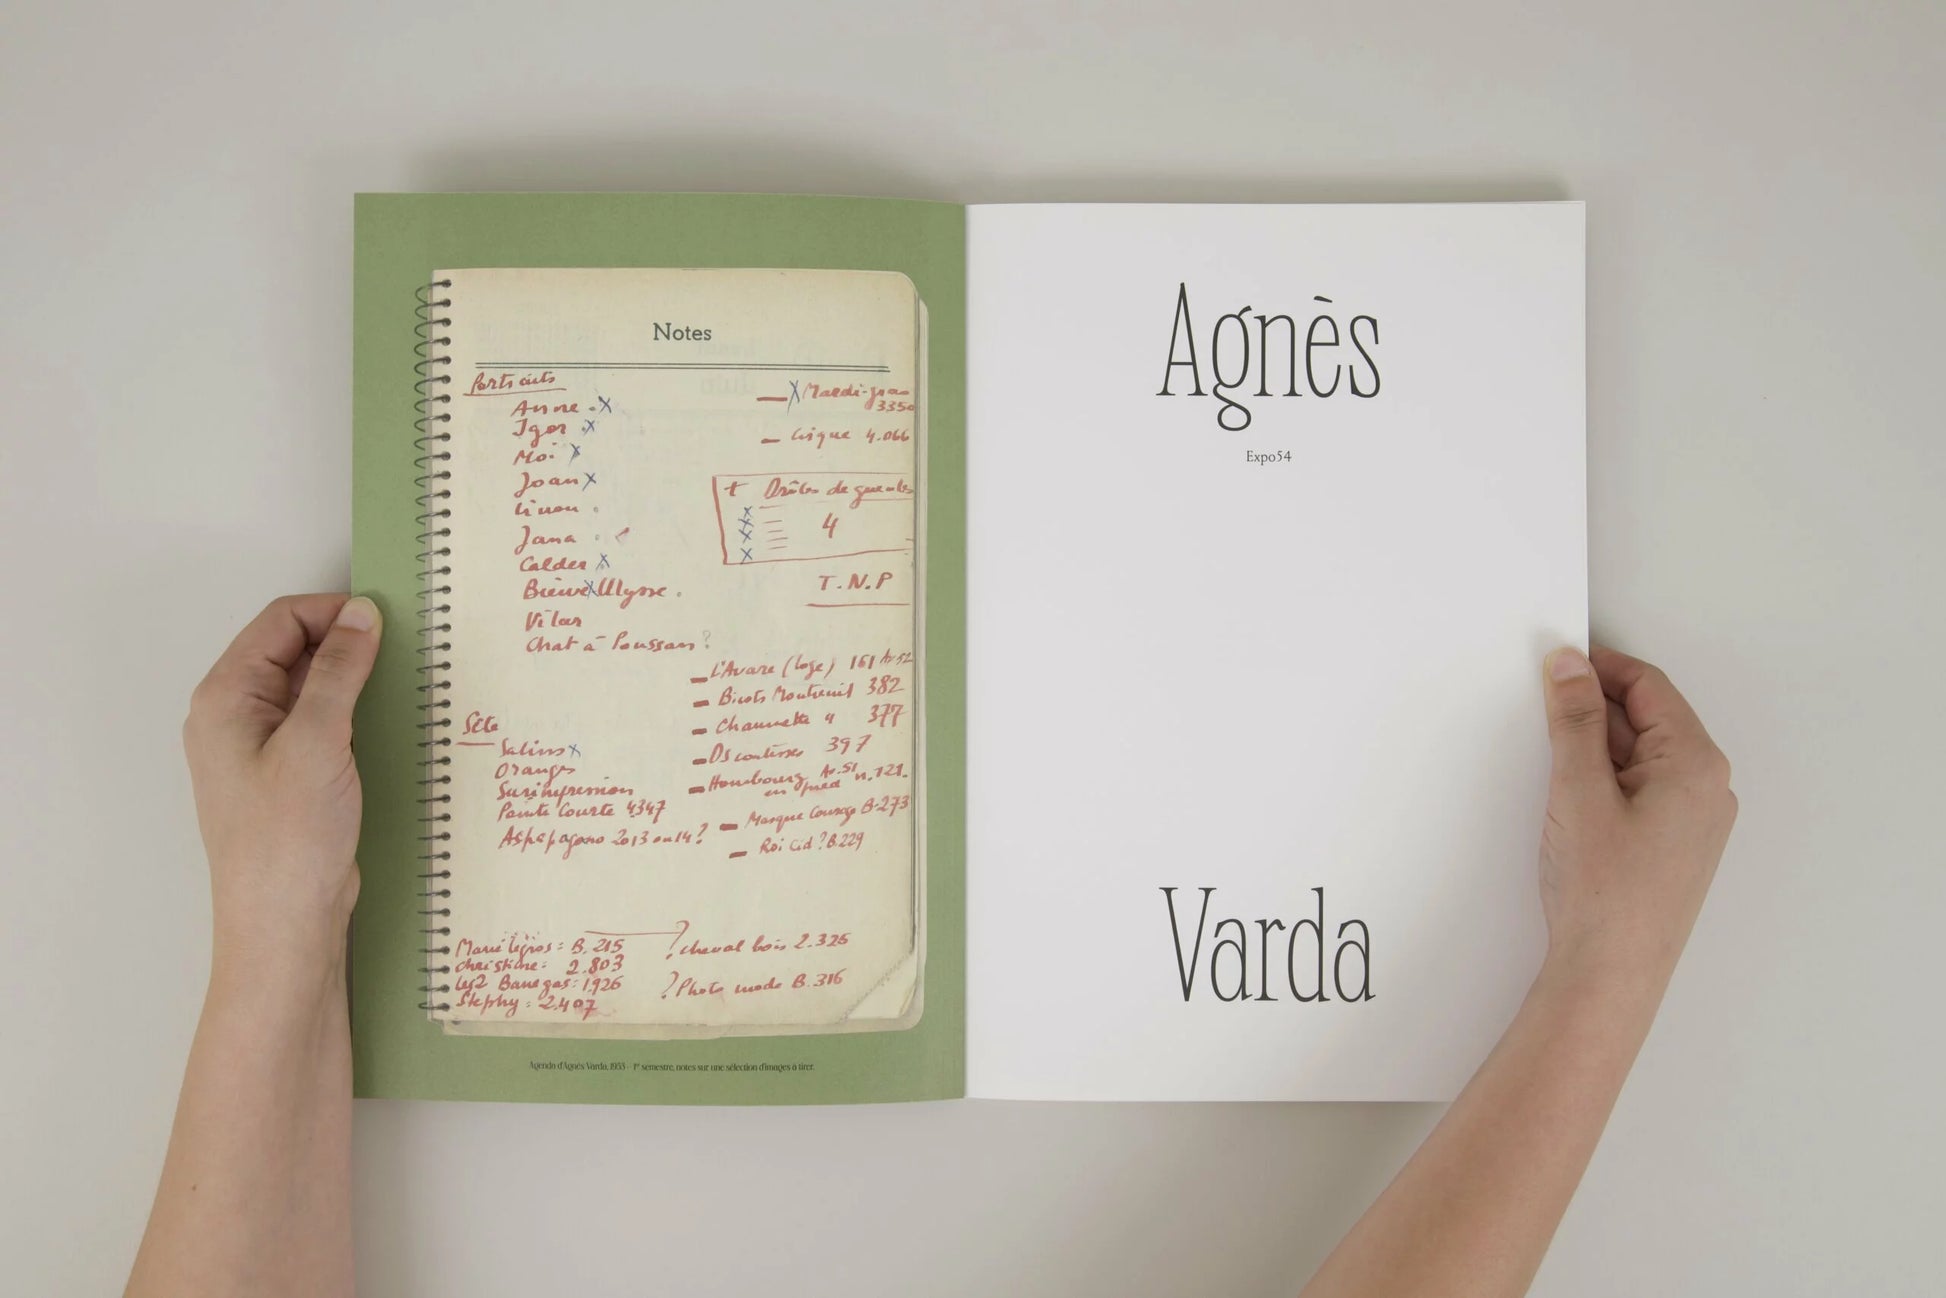 Notes
Portraits
Anne . x
Igor . x
Moi x
Joan x
Linou .
Jana .
Calder x
Bièvre x Ulysse .
Vilar
Chat à Poussan ?
x Mardi-gras
3350
Cirque 4.066
+ Drôles de gueules
4
T.N.P
L'Avare (loge) 161 Av 52
Bicots Montreuil 382
Chaussette " 377
DS coulisses 397
Hombourg Av. 51 n. 121.
en pied
Masque Courage B-273
Roi Cid ? B.229
Sète
Salins x
Oranges
Surimpression
Pointe Courte 4347
2013 ou 14 ?
Marie Légros : B. 215
Christine : 2.803
Les 2 Banegas : 1.926
Stephy : 2.407
? cheval bois 2.325
? Photo mode B. 316
Agenda d'Agnès Varda, 1953 - 1er semestre, notes sur une sélection d'images à tirer.
Agnès
Expo54
Varda